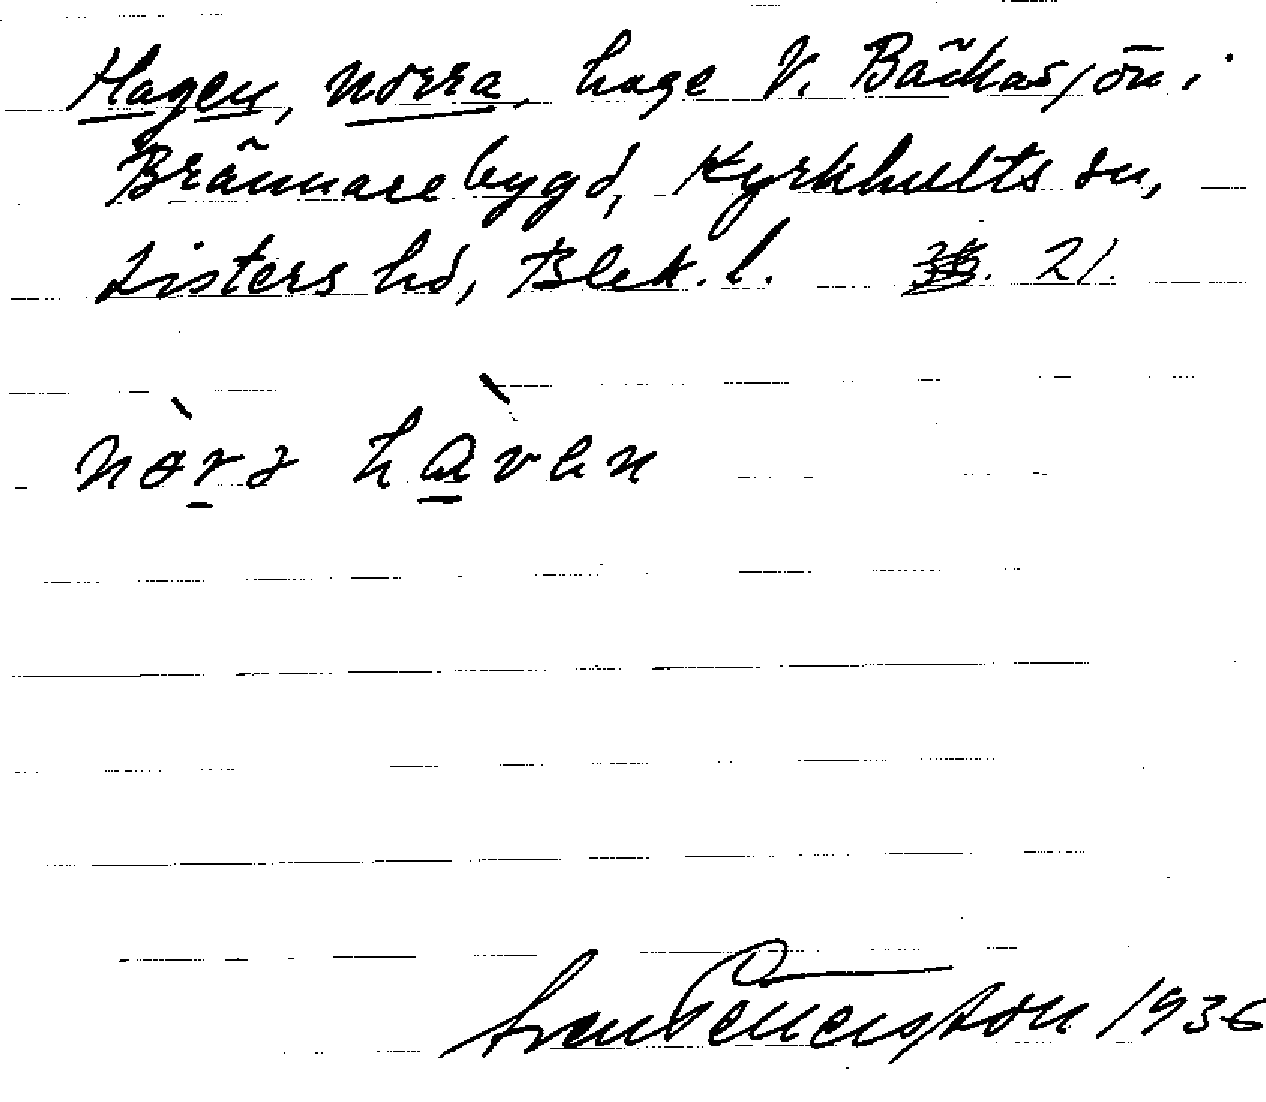 Hagen, Norra, hage V. Bäckasjön i
Brännarebygd, Kyrkhults sn,
Listers hd, Blek. l. 21.
nòrə hàvən
Pettersson 1936